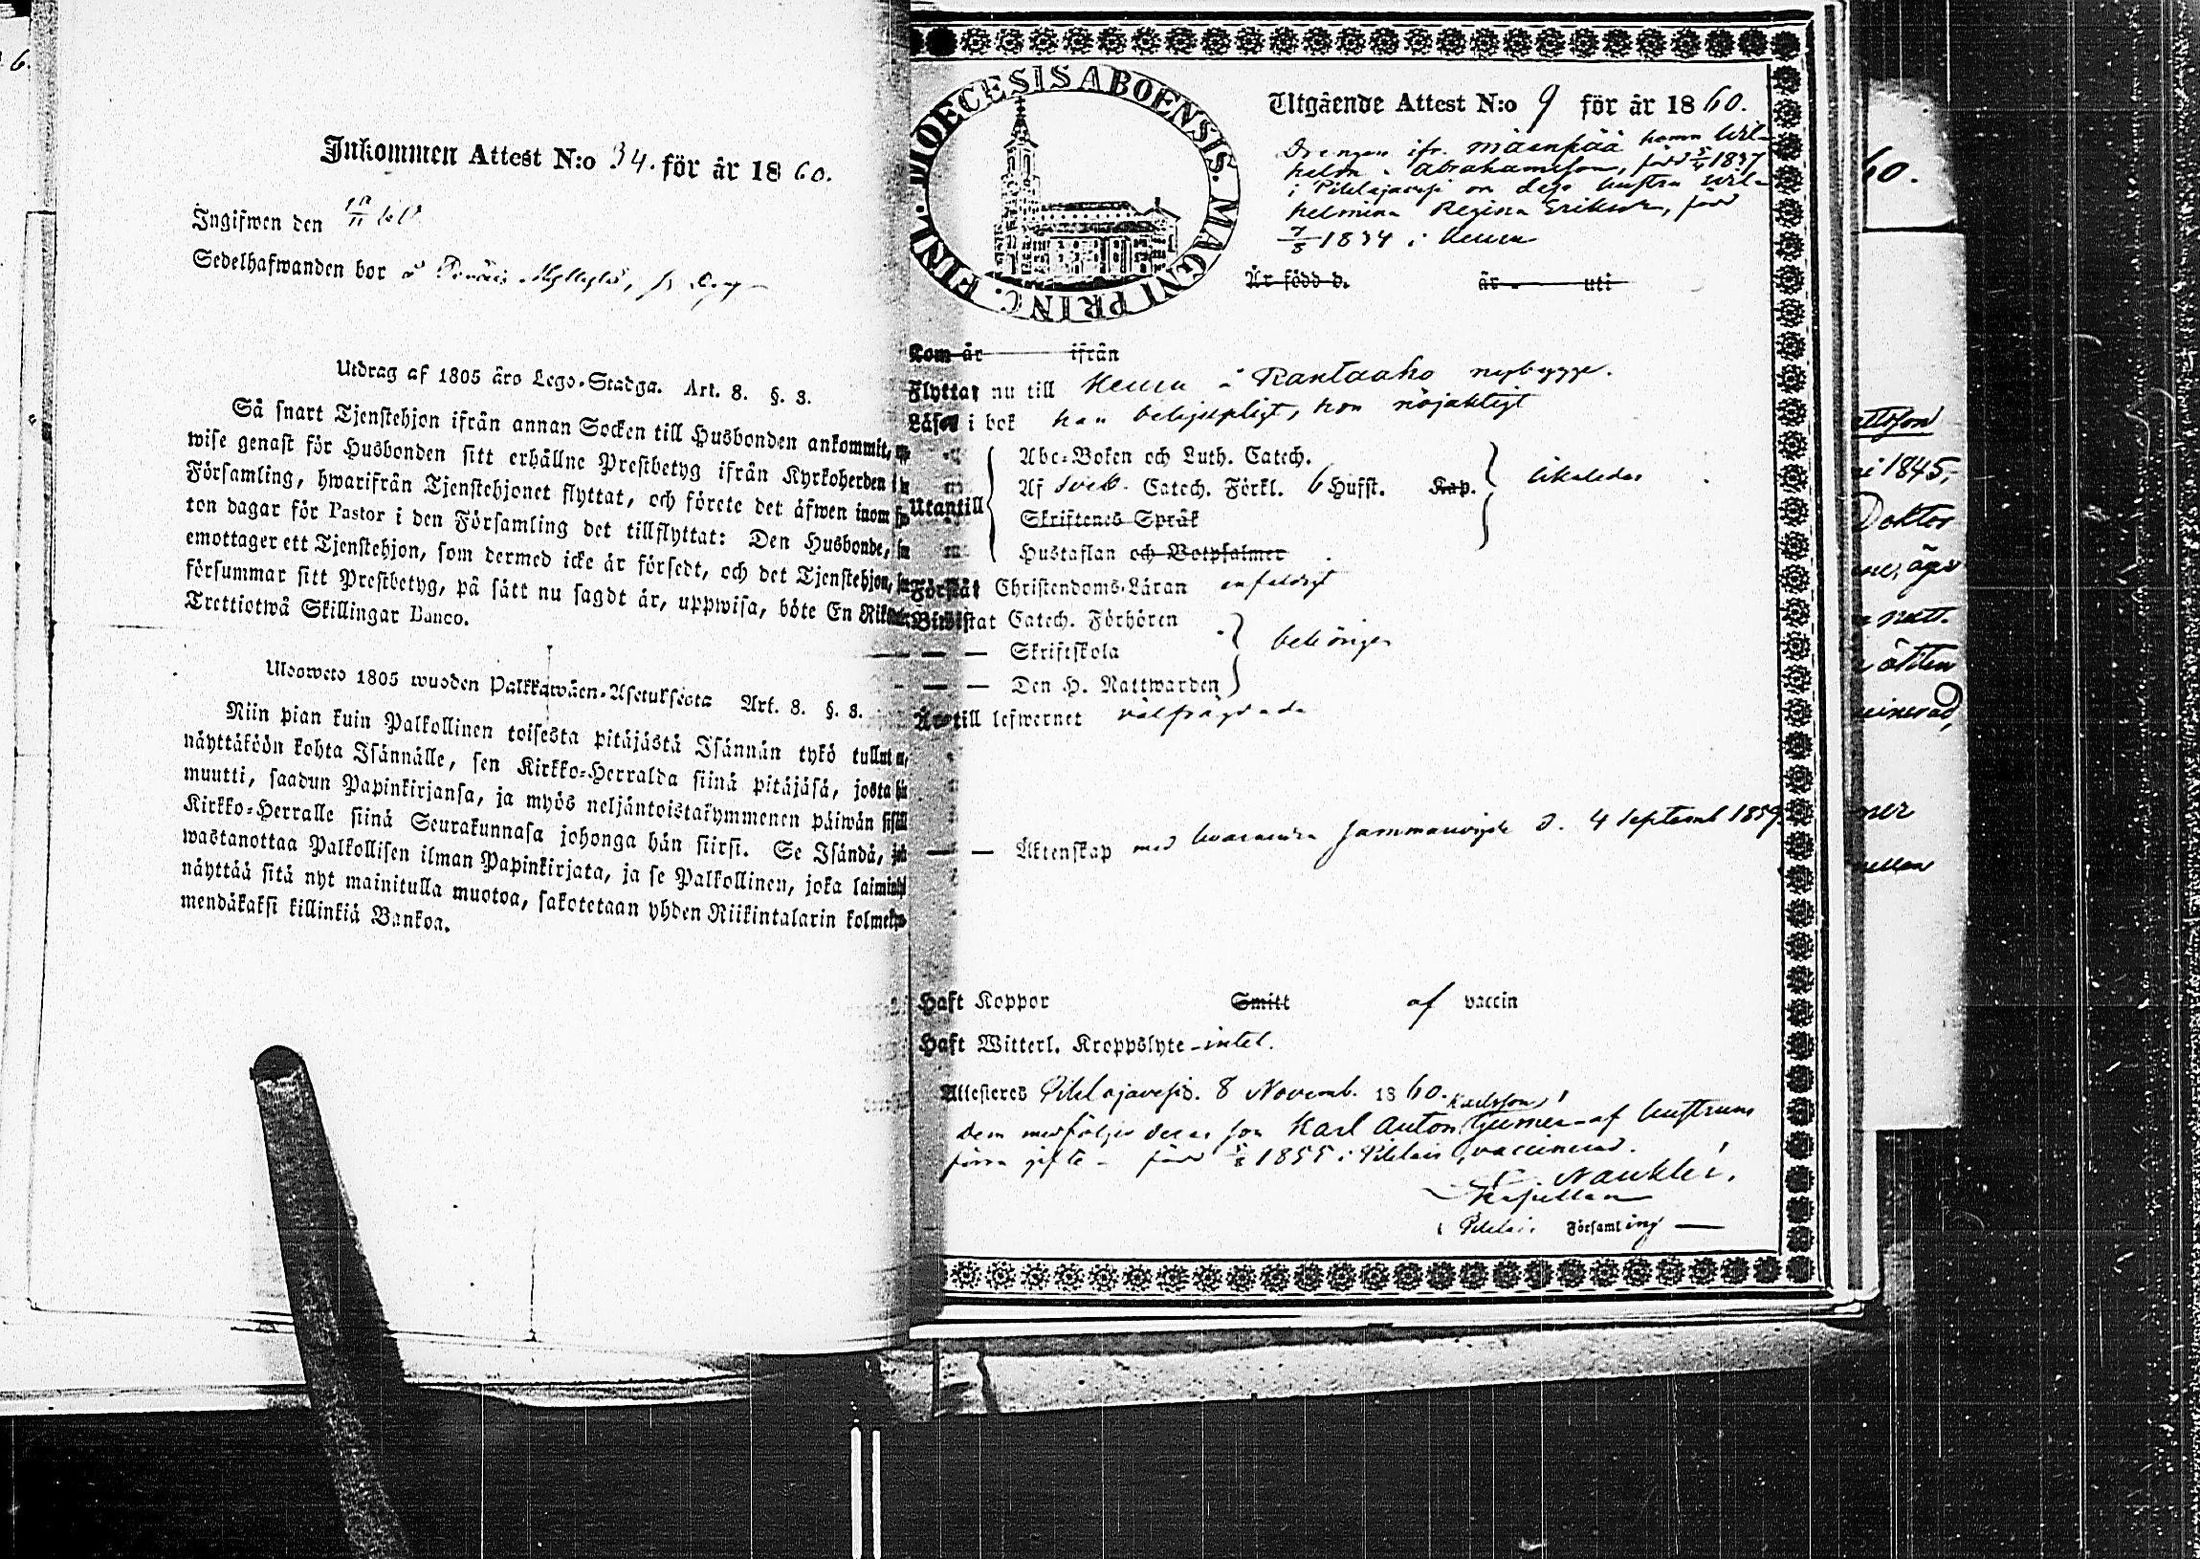 6.
Inkommen Attest N:o 34. för år 1860.
Ingifwen den
Sedelhafwanden bor å
Utdrag af 1805 års Lego-Stadga. Art. 8. §. 3.
Så snart Tjenstehjon ifrån annan Socken till Husbonden ankommit,
wise genast för Husbonden sitt erhållne Prestbetyg ifrån Kyrkoherden i
Församling, hwarifrån Tjenstehjonet flyttat, och förete det äfwen inom
ton dagar för Pastor i den Församling det tillflyttat: Den Husbonde,
emottager ett Tjenstehjon, som dermed icke är försedt, och det Tjenstehjon,
försummar sitt Prestbetyg, på sätt nu sagdt är, uppwisa, böte En
Trettiotwå Skillingar Banco.
Ulosweto 1805 wuoden Palkkawäen-Asetuksesta Art. 8. §. 3.
Niin pian kuin Palkollinen toisesta pitäjästä Isännän tykö tullut
näyttäköön kohta Isännälle, sen Kirkko-Herralda siinä pitäjäsä, josta
muutti, saadun Papinkirjansa, ja myös neljäntoistakymmenen päiwän
Kirkko-Herralle siinä Seurakunnasa johonga hän siirsi. Se Isändä,
wastanottaa Palkollisen ilman Papinkirjata, ja se Palkollinen, joka
näyttää sitä nyt mainitulla muotoa, sakotetaan yhden Riikintalarin
mendäkaksi killinkiä Bankoa.
DIOECESIS ABOENSIS. MAGNI PRINC. FINL.
Utgående Attest N:o 9 för år 1860.
Drengen ifr. Mäenpää Wil-
helm Abrahamsson, född 1837
i Pihlajavesi o dess hustru Wil-
helmina Regina Eriksdr, född
7/8 1834 i Keuru
Är född d. år uti
Kom år ifrån
Flyttar nu till Keuru å Rantaaho nybygge.
Läser i bok han behjelpligt, hon nöjaktigt
Utantill
Abc-Boken och Luth. Catech.
Af Sveb. Catech. Förkl. 6 Hufst. Kap.
Skriftenes Språk
Hustaflan och Botpsalmer
likaledes
Förstår Christendoms-Läran enfaldigt
Biwistat Catech. Förhören
— — Skriftskola
— — Den H. Nattwarden
behörigen
Äro till lefwernet välfrägdade
— — Äktenskap med hvarandra sammanvigde d. 4 Septemb 1859
Haft Koppor Smitt af vaccin
Haft Witterl. Kroppslyte intet.
Attesteras Pihlajavesi d. 8 Novemb. 1860.
Karlsson
Dem medföljer deras son Karl Anton af hustruns
förra gifte - född 1855 i Pihlais vaccinerad.
Nauklér.
Kapellan
i Pihlais Församling
60.
i 1845,
Doktor